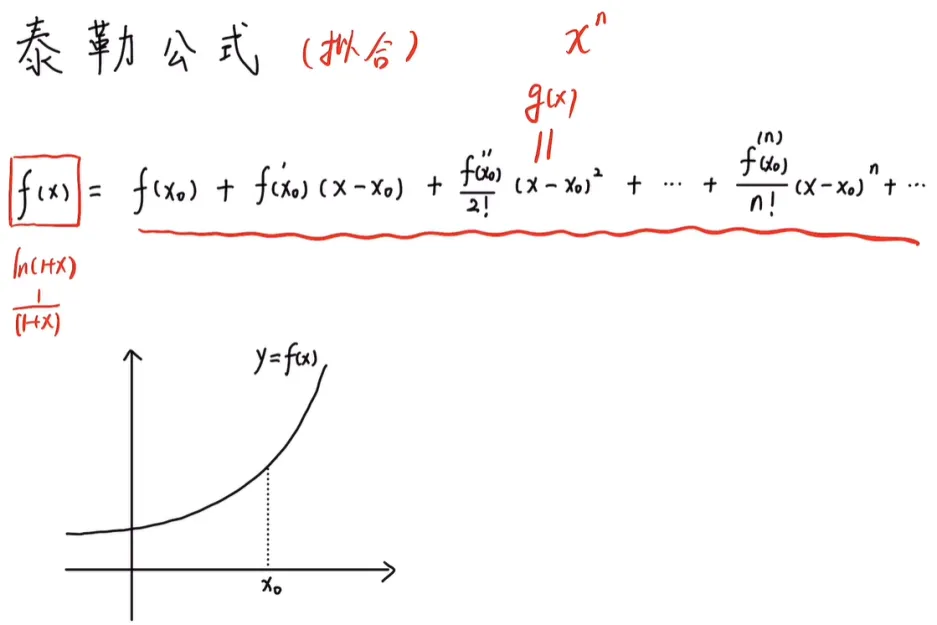 泰勒公式 (拟合) xⁿ
g(x)
||
f(x) = f(x₀) + f'(x₀)(x-x₀) + f''(x₀)/2! (x-x₀)² + ··· + f⁽ⁿ⁾(x₀)/n! (x-x₀)ⁿ + ···
ln(1+x)
1/(1+x)
y=f(x)
x₀